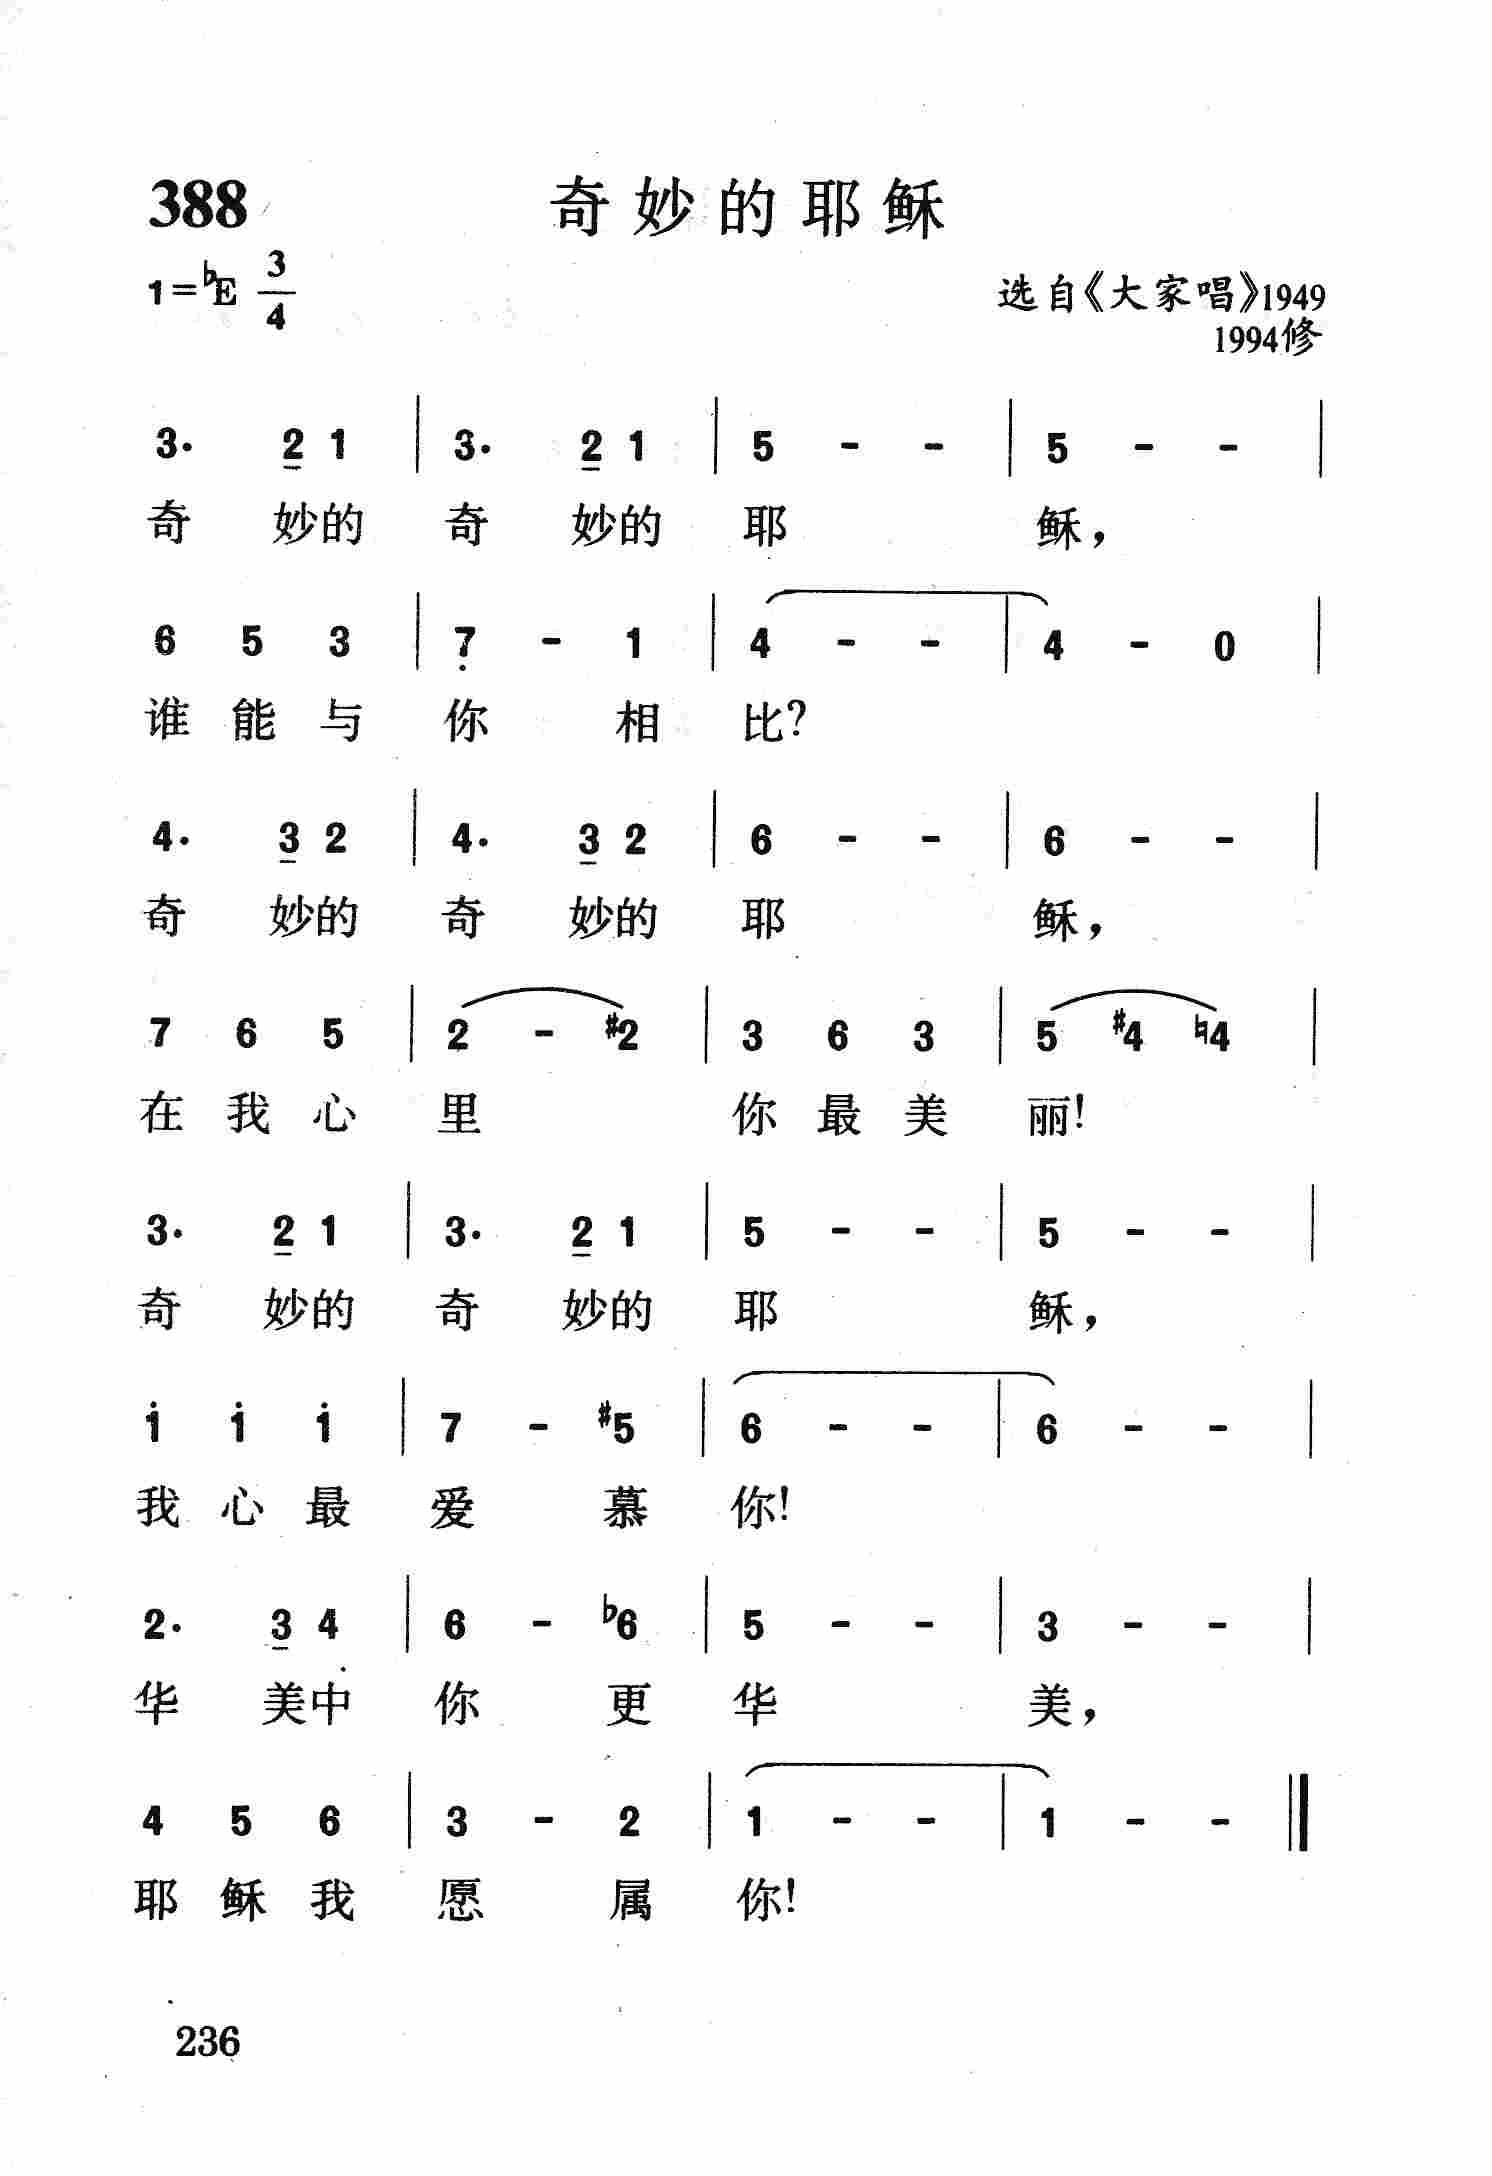 388 奇妙的耶稣
1=♭E 3/4 选自《大家唱》1949
1994修
3· 2 1 | 3· 2 1 | 5 - - | 5 - - |
奇 妙的 奇 妙的 耶 稣，
6 5 3 | 7̣ - 1 | 4 - - | 4 - 0 |
谁 能 与 你 相 比？
4· 3 2 | 4· 3 2 | 6 - - | 6 - - |
奇 妙的 奇 妙的 耶 稣，
7 6 5 | 2 - #2 | 3 6 3 | 5 #4 ♮4 |
在 我 心 里 你 最 美 丽！
3· 2 1 | 3· 2 1 | 5 - - | 5 - - |
奇 妙的 奇 妙的 耶 稣，
1̇ 1̇ 1̇ | 7 - #5 | 6 - - | 6 - - |
我 心 最 爱 慕 你！
2· 3 4 | 6 - ♭6 | 5 - - | 3 - - |
华 美中 你 更 华 美，
4 5 6 | 3 - 2 | 1 - - | 1 - - ‖
耶 稣 我 愿 属 你！
236